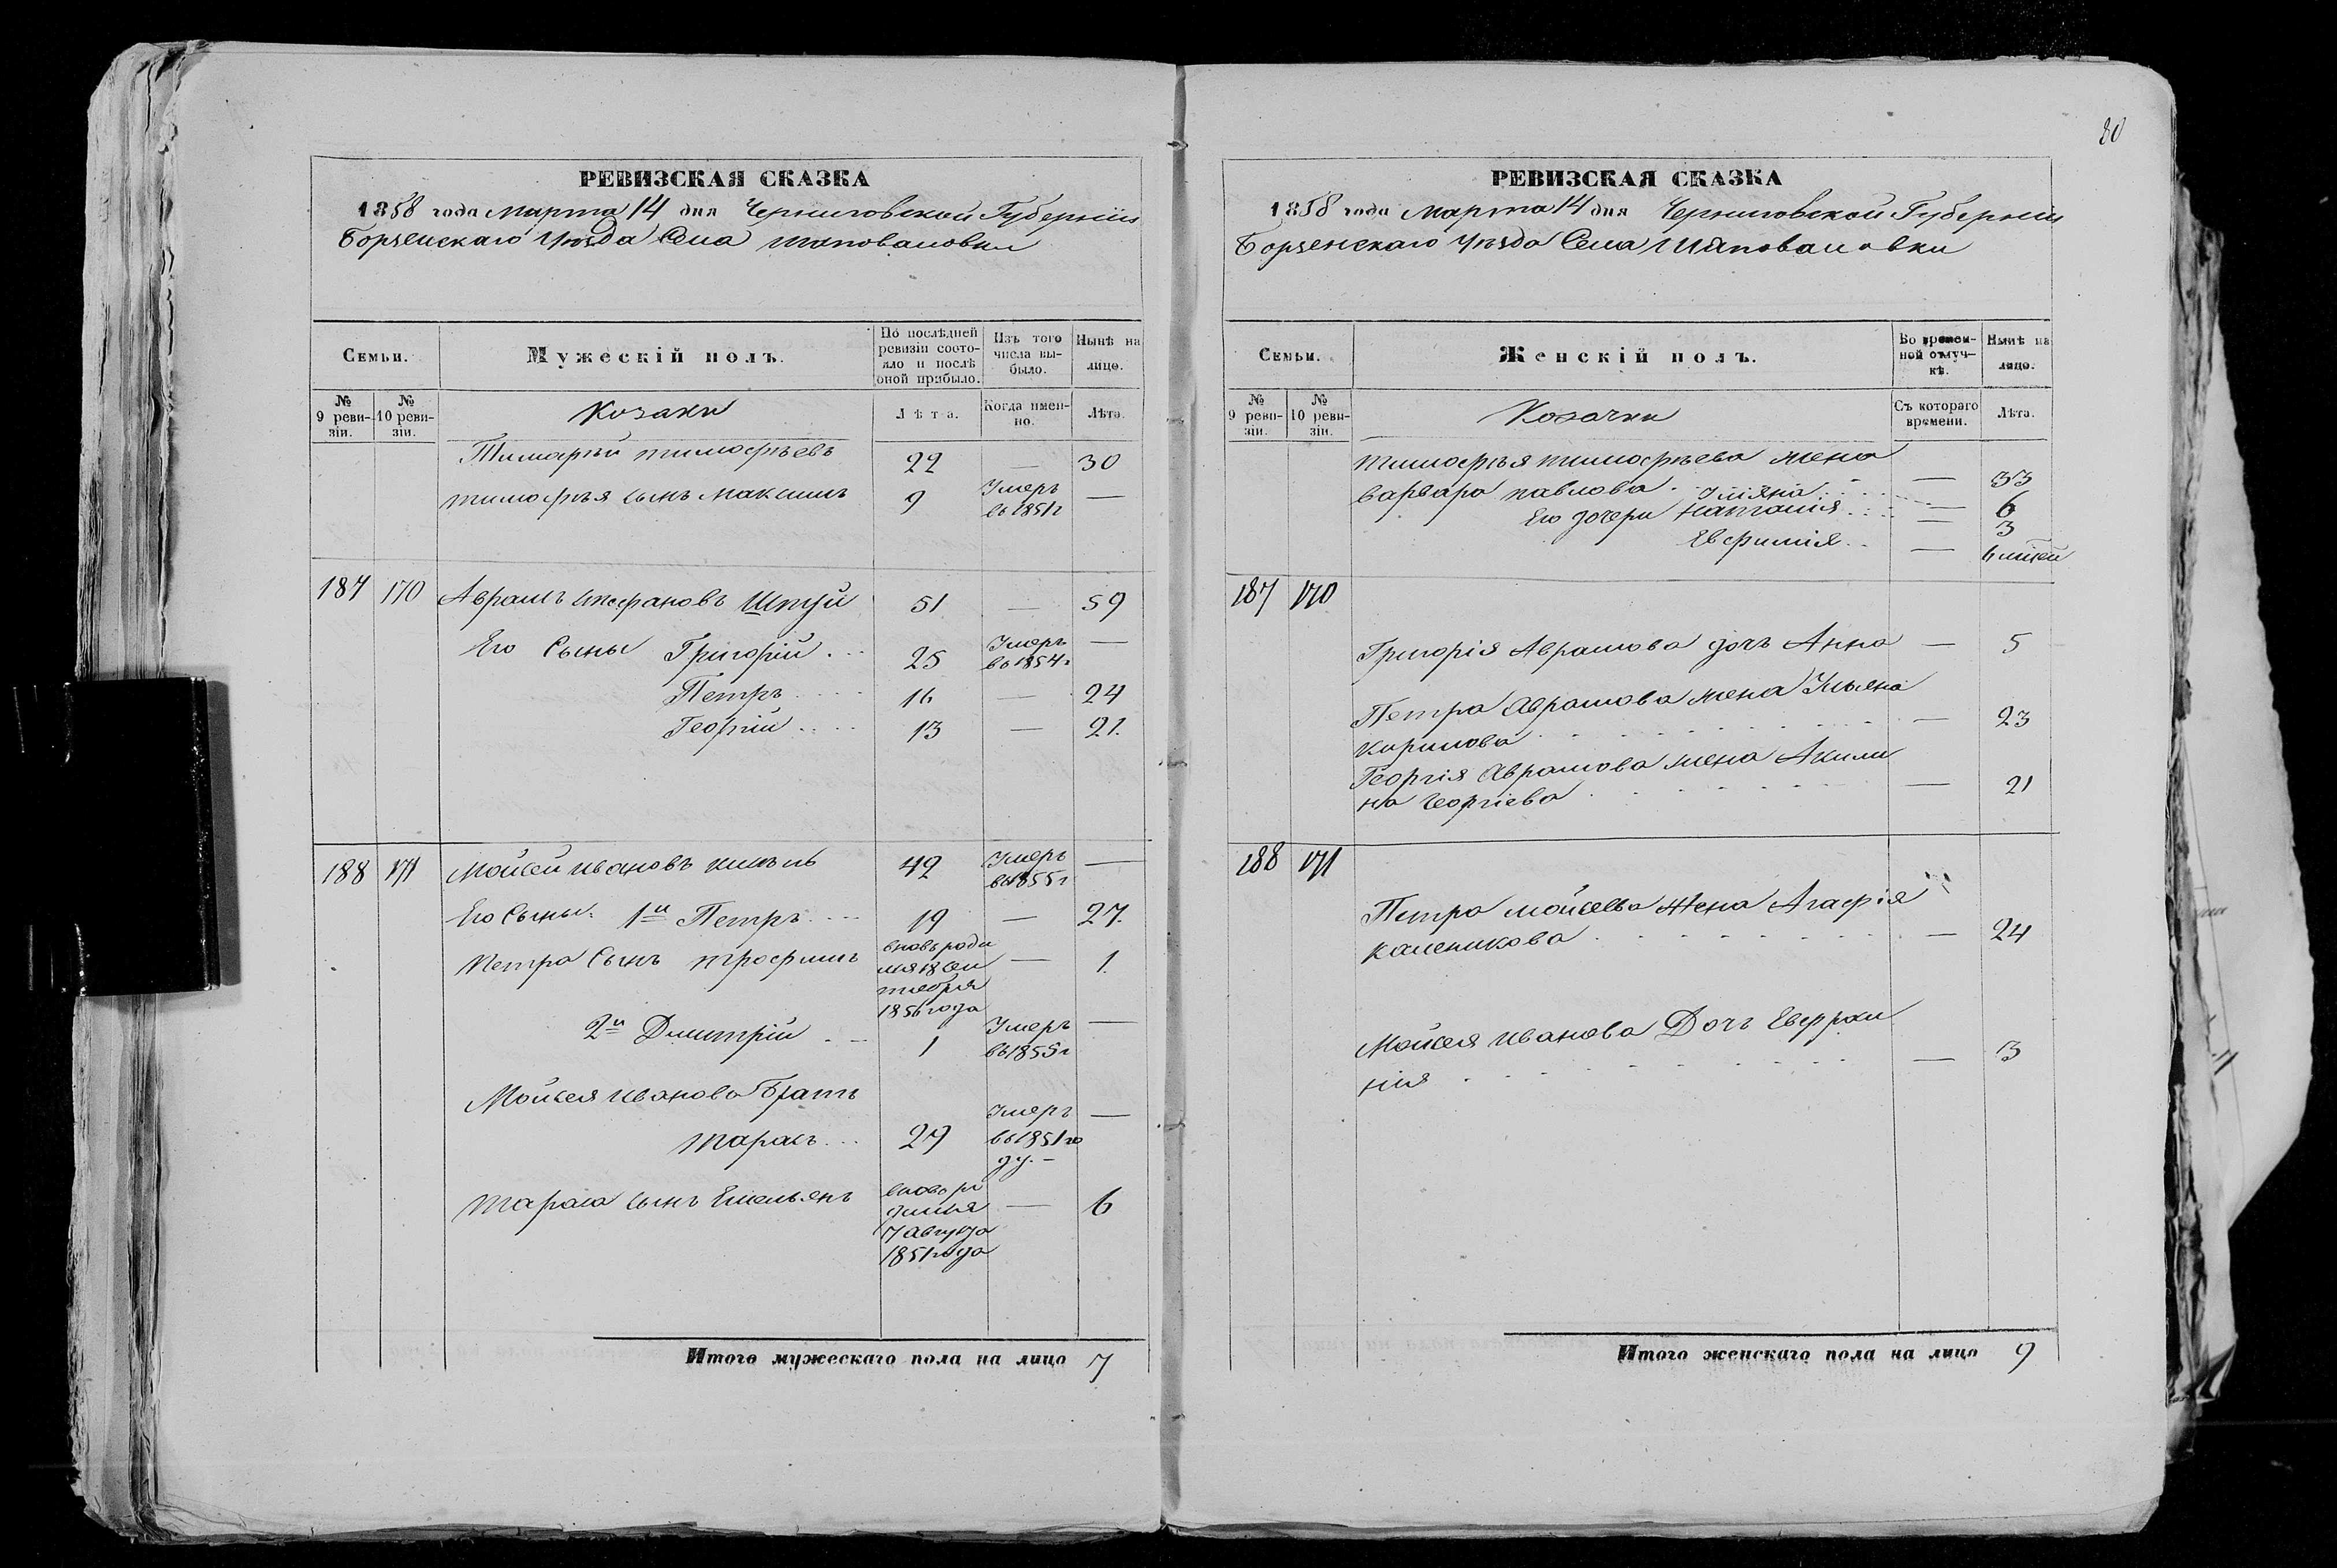 РЕВИЗСКАЯ СКАЗКА
1858 года Марта 14 дня Черниговской Губерніи
Борзенскаго Уѣзда Села Шаповаловки
Семьи.
Мужескій полъ.
По послѣдней ревизіи состояло и послѣ оной прибыло.
Изъ того числа выбыло.
Нынѣ на лицо.
№ 9 ревизіи.
№ 10 ревизіи.
Козаки
Лѣта.
Когда именно.
Лѣта.
Тимофѣй тимофѣевъ 22 — 30
тимофѣя сынъ Максимъ 9 Умеръ —
въ 1851 г
187 170 Аврамъ стефановъ Шпуй 51 — 59
Его Сыны Григорій 25 Умеръ —
въ 1854 г
Петръ 16 — 24
Георгій 13 — 21.
188 171 Мойсей ивановъ 42 Умеръ —
въ 1855 г
Его Сыны: 1й Петръ 19 — 27.
Петра Сынъ трофимъ вновь роди — 1.
лся 18 Сен
тября
1856 года
2й Дмитрій 1 Умеръ —
въ 1855 г
Мойсея иванова Братъ
тарасъ 29 Умеръ —
въ 1851 го
ду. —
тараса сынъ Емельянъ вновь ро — 6
дился
7 августа
1851 года
Итого мужескаго пола на лицо 7
80
РЕВИЗСКАЯ СКАЗКА
1858 года Марта 14 дня Черниговской Губерніи
Борзенскаго Уѣзда Села Шаповаловки
Семьи.
Женскій полъ.
Во временной отлучкѣ.
Нынѣ на лицо.
№ 9 ревизіи.
№ 10 ревизіи.
Козачки
Съ котораго времени.
Лѣта.
тимофѣя тимофѣева жена
варвара павлова — 33
Уліяна — 6
Его дочери Наталія — 3
Евфимія — 6
187 170
Григорія Аврамова дочь Анна — 5
Петра Аврамова жена Ульяна
Кирилова — 23
Георгія Аврамова жена Акили
на Георгіева — 21
188 171
Петра мойсеева Жена Агафія
Каленикова — 24
Мойсея иванова Дочь Евфрки
нія — 3
Итого женскаго пола на лицо 9